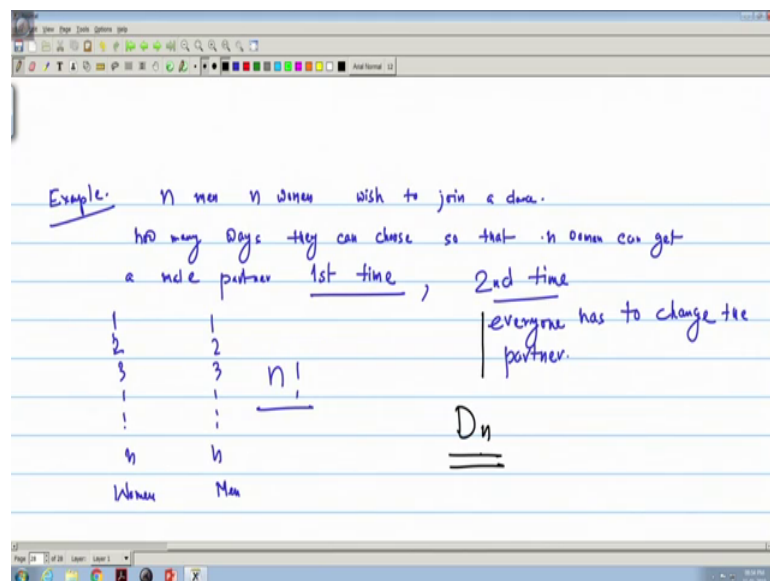 View Page Tools Options Help
Arial Normal 12
Example. n men n women wish to join a dance.
how many ways they can choose so that n women can get
a male partner 1st time, 2nd time
everyone has to change the
partner.
1 1
2 2
3 3
n!
Dn
n n
Women Men
Page 28 of 28 Layer: Layer 1